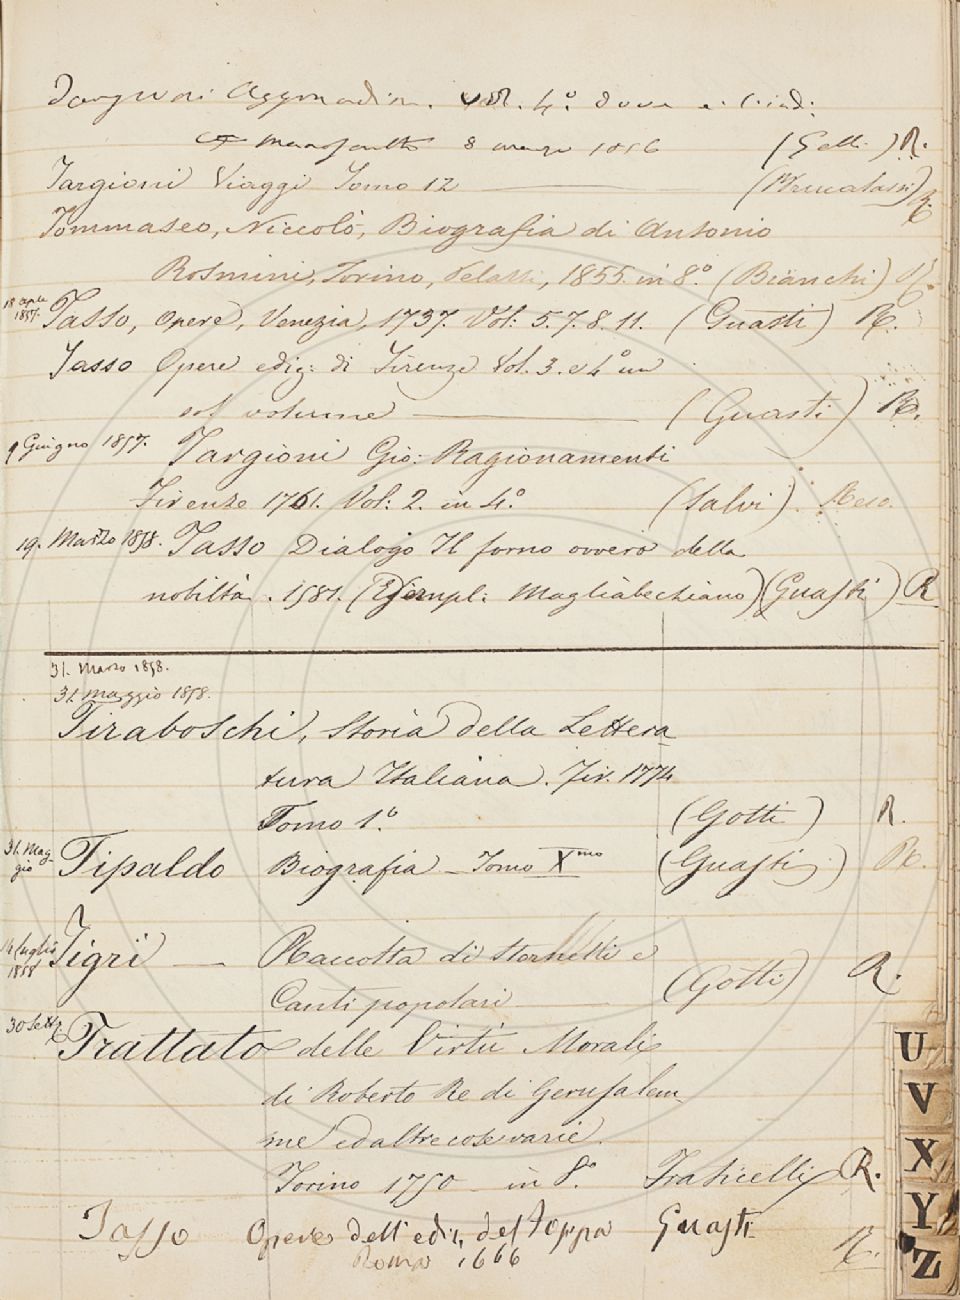 Targioni Viaggi Tomo 12
Tommaseo, Niccolò, Biografia di Antonio
Rosmini, Torino, 1855. in 8° (Bianchi) R.
18 aple 1857. Tasso, Opere, Venezia, 1737. Vol: 5. 7. 8. 11. (Guasti) R.
Tasso Opere ediz: di Firenze Vol. 3. e 4° un
sol volume (Guasti) R.
9 Giugno 1857. Targioni Gio: Ragionamenti
Firenze 1761. Vol: 2. in 4° (Salvi). Reso.
19. Marzo 1858. Tasso Dialogo Il forno ovvero della
nobiltà. 1581. (Esempl: Magliabechiano) (Guasti) R
31. Marzo 1858.
31 maggio 1858.
Tiraboschi, Storia della Lettera
tura Italiana. Fir. 1774
Tomo 1.° (Gotti) R.
31. Mag-
gio Tipaldo Biografia - Tomo Xmo (Guasti) R.
14 luglio
1858 Tigri — Raccolta di Stornelli e
Canti popolari (Gotti) R.
30 Sett. Trattato delle Virtù Morali
di Roberto Re di Gerusalem
me ed altre cose varie.
Torino 1750 in 8.° Fraticelli R.
Tasso Opere dell' ediz. del Guasti
Roma 1666 R.
U
V
X
Y
Z